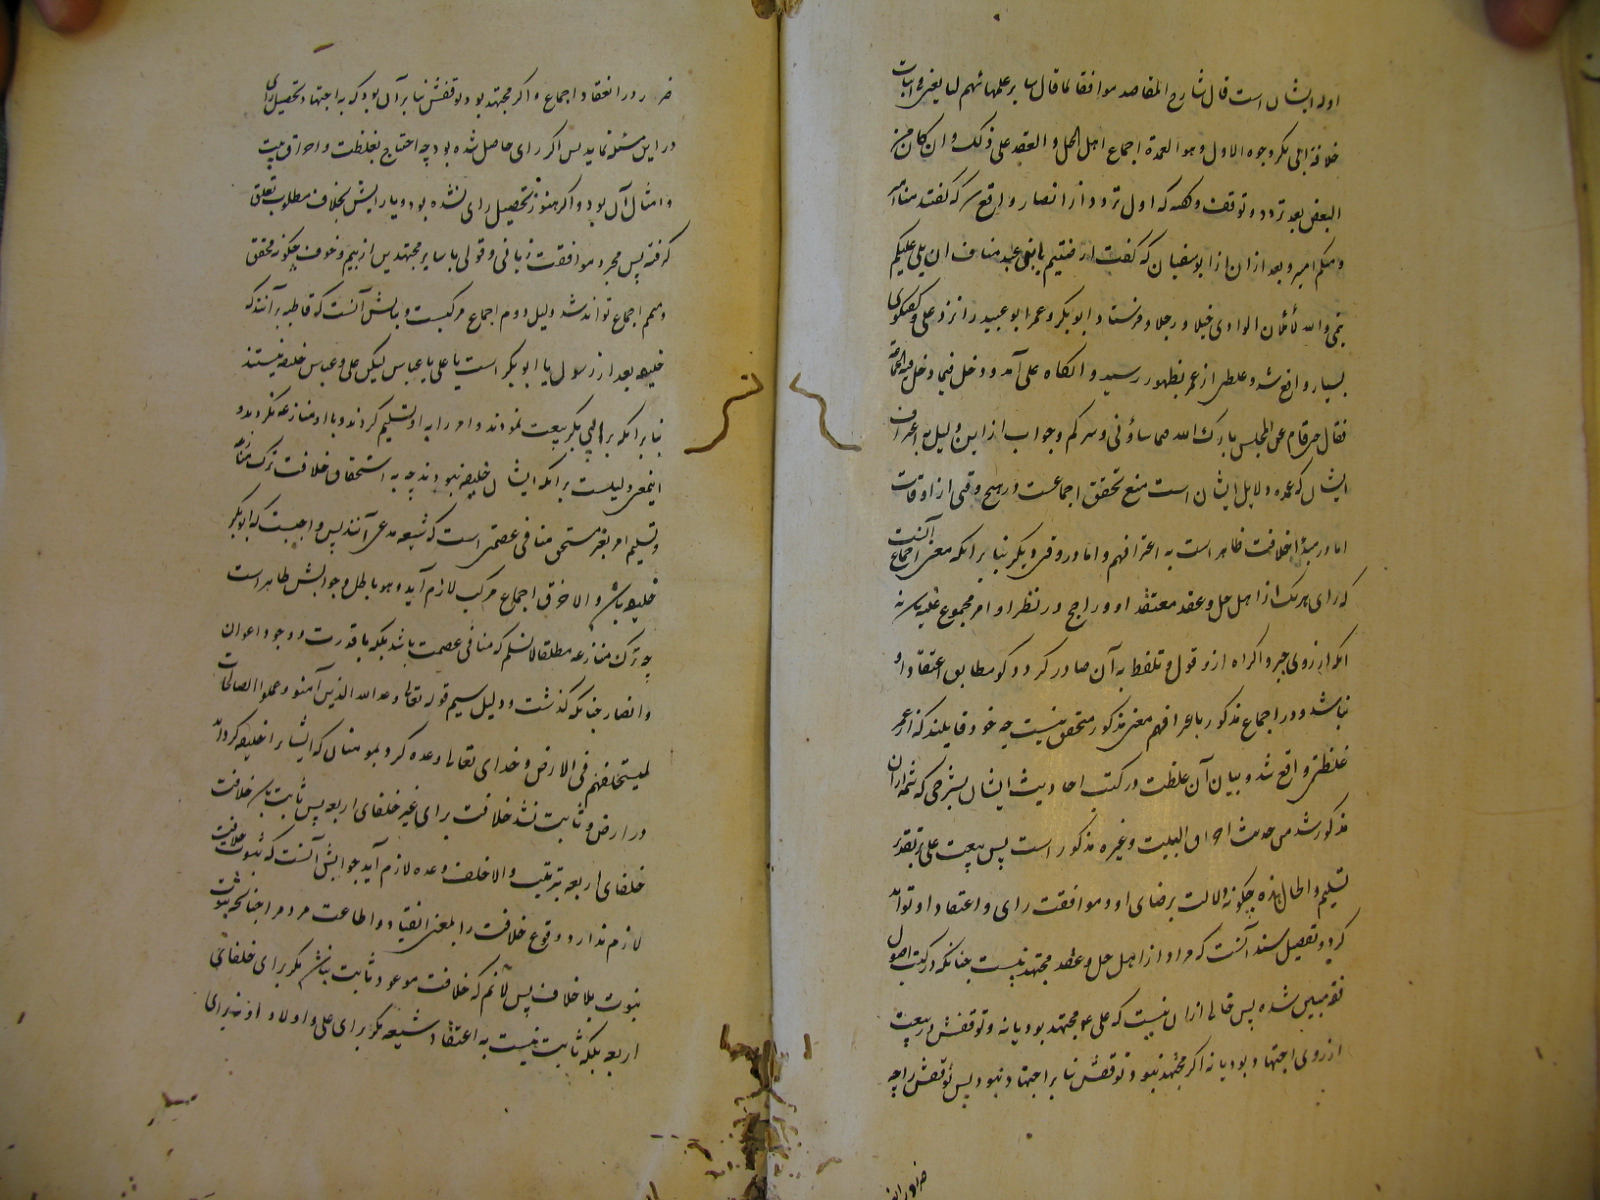 ادله ایشان است قال شارح المقاصد موافقا لما قال سایر علمائهم لنا یغیر فی اثبات
خلافة ابی بکر وجوه الاول وهو العمدة اجماع اهل الحل و العقد علی ذلک و ان کان من
البعض بعد تردد و توقف و گفته که اول تردد از انصار واقع شد که گفتند منا امیر
و منکم امیر و بعد ازان از ابوسفیان که گفت ارضیتم یا بنی عبد مناف ان یلی علیکم
تیمی والله لاملأن الوادی خیلا و رجلا و فرستاد ابوبکر و عمر ابو عبیده را نزد علی و گفتگوی
بسیار واقع شد و غلظی از عمر بظهور رسید و انگاه علی آمد و دخل فیما دخل فیه الجماعة
فقال حین قام عن المجلس بارک الله فیما ساؤنی و سرکم و جواب از این دلیل به اعتراف
ایشان که عمده دلایل ایشان است منع تحقق اجماعست در هیچ وقتی از اوقات
اما در مبدأ خلافت ظاهر است به اعترافهم و اما در وقتی دیگر بنا برانکه معنی اجماع آنست
که رای هر یک از اهل حل و عقد معتقد او و راجح در نظر او امر مجموع علیه باشد نه
انکه از روی جبر و اکراه ازو قول و تلفظ به آن صادر گردد که مطابق اعتقاد او
نباشد و در اجماع مذکور باعترافهم معنی مذکور متحقق نیست چه خود قایلند که از عمر
غلظتی واقع شد و بیان آن غلظت در کتب احادیث ایشان بشرحی که شمه ازان
مذکور شد من حدیث احراق البیت و غیره مذکور است پس بیعت علی بر تقدیر
تسلیم و الحال هذه چگونه دلالت برضای او و موافقت رای و اعتقاد او تواند
کرد و تفصیل سند آنست که مراد از اهل حل و عقد مجتهدینست چنانکه در کتب اصول
فقه مبین شده پس خالی ازان نیست که علی ع مجتهد بود یا نه و توقفش در بیعت
از روی اجتهاد بود یا نه اگر مجتهد نبود و توقفش بنا بر اجتهاد نبود پس توقفش را چه
ضرر در انعقاد
ضرر در انعقاد اجماع و اگر مجتهد بود و توقفش بنا بر آن بود که به اجتهاد تحصیل رای
در این مسئله نماید پس اگر رای حاصل شده بود چه احتیاج بغلظت و احراق بیت
و امثال آن بود و اگر هنوز تحصیل رای نشده بود و یا رایش بخلاف مطلوب تعلق
گرفته پس مجرد موافقت زبانی و قولی با سایر مجتهدین از بیم و خوف چگونه محقق
و متمم اجماع تواند شد دلیل دوم اجماع مرکبست و بیانش آنست که قاطبه بر آنند که
خلیفه بعد از رسول یا ابوبکر است یا علی یا عباس لیکن علی و عباس خلیفه نیستند
بنا برانکه با ابی بکر بیعت نمودند و امر را به او تسلیم کردند و با او منازعه نکردند و
اینمعنی دلیلست برانکه ایشان خلیفه نبودند چه به استحقاق خلافت ترک منازعه
و تسلیم امر بغیر مستحق منافی عصمتی است که شیعه مدعی آنند پس واجبست که ابوبکر
خلیفه باشد و الا خرق اجماع مرکب لازم آید و هو باطل و جوابش ظاهر است
چه ترک منازعه مطلقا لا نسلم که منافی عصمت باشد بلکه با قدرت و وجود اعوان
و انصار چنانکه گذشت و دلیل سیم قوله تعالی وعد الله الذین آمنوا وعملوا الصالحات
لیستخلفنهم فی الارض و خدای تعالی وعده کرد بمومنان که ایشانرا خلیفه گرداند
در ارض و ثابت نشد خلافت برای غیر خلفای اربعه پس ثابت باشد خلافت
خلفای اربعه بترتیب و الا خلف وعده لازم آید جوابش آنست که ثبوت خلافت
لازم ندارد وقوع خلافت را بمعنی انقیاد و اطاعت مردم را چنانکه ثبوت
نبوت بلا خلاف پس لانم که خلافت موعود ثابت نباشد مگر برای خلفای
اربعه بلکه ثابت نیست به اعتقاد شیعه مگر برای علی و اولاد او نه برای